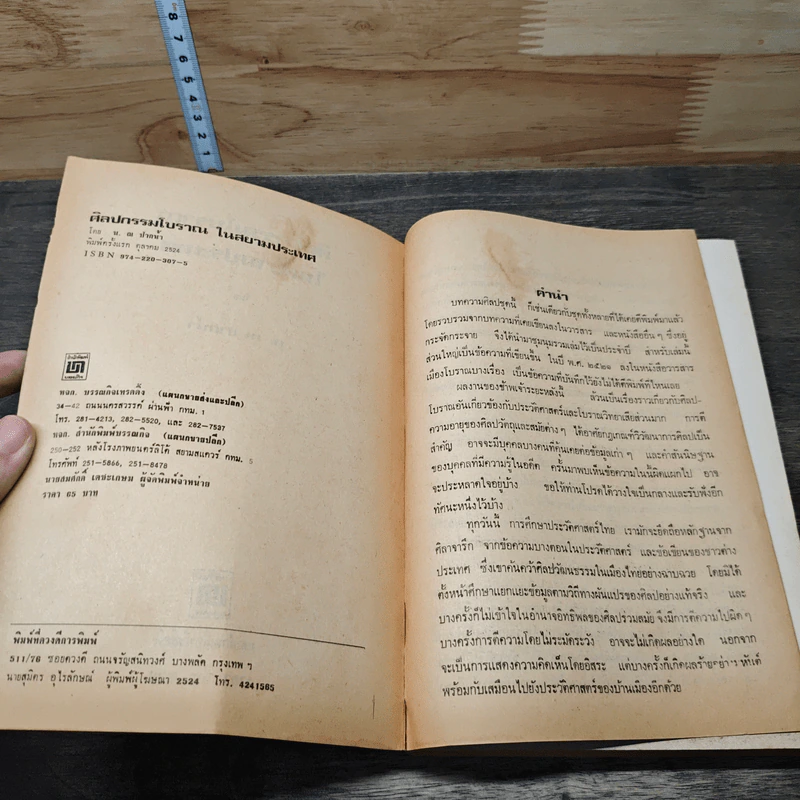 8
7
6
5
4
3
2
1
ศิลปกรรมโบราณ ในสยามประเทศ
โดย น. ณ ปากน้ำ
พิมพ์ครั้งแรก ตุลาคม 2524
ISBN 974-220-307-5
หจก. บรรณกิจเทรดดิ้ง (แผนกขายส่งและปลีก)
34-42 ถนนนครสวรรค์ ผ่านฟ้า กทม. 1
โทร. 281-4213, 282-5520, และ 282-7537
หจก. สำนักพิมพ์บรรณกิจ (แผนกขายปลีก)
250-252 หลังโรงภาพยนตร์ลิโด้ สยามสแควร์ กทม. 5
โทรศัพท์ 251-5866, 251-8478
นายสมศักดิ์ เตชะเกษม ผู้จัดพิมพ์จำหน่าย
ราคา 65 บาท
พิมพ์ที่ดวงดีการพิมพ์
511/76 ซอยดวงดี ถนนจรัญสนิทวงศ์ บางพลัด กรุงเทพ ฯ
นายสุมิตร อุไรลักษณ์ ผู้พิมพ์ผู้โฆษณา 2524 โทร. 4241585
คำนำ
บทความศิลปชุดนี้ ก็เช่นเดียวกับชุดทั้งหลายที่ได้เคยตีพิมพ์มาแล้ว
โดยรวบรวมจากบทความที่เคยเขียนลงในวารสาร และหนังสืออื่น ๆ ซึ่งอยู่
กระจัดกระจาย จึงได้นำมาชุมนุมรวมเล่มไว้เป็นประจำปี สำหรับเล่มนี้
ส่วนใหญ่เป็นข้อความที่เขียนขึ้น ในปี พ.ศ. ๒๕๒๑ ลงในหนังสือวารสาร
เมืองโบราณบางเรื่อง เป็นข้อความที่บันทึกไว้ยังไม่ได้ตีพิมพ์ที่ไหนเลย
ผลงานของข้าพเจ้าระยะหลังนี้ ล้วนเป็นเรื่องราวเกี่ยวกับศิลป-
โบราณอันเกี่ยวข้องกับประวัติศาสตร์และโบราณวิทยาเสียส่วนมาก การตี
ความอายุของศิลปวัตถุและสมัยต่าง ๆ ได้อาศัยกฎเกณฑ์วิวัฒนาการศิลปเป็น
สำคัญ อาจจะมีบุคคลบางคนที่คุ้นเคยต่อข้อมูลเก่า ๆ และคำสันนิษฐาน
ของบุคคลที่มีความรู้ในอดีต ครั้นมาพบเห็นข้อความในนี้ผิดแผกไป อาจ
จะประหลาดใจอยู่บ้าง ขอให้ท่านโปรดได้วางใจเป็นกลางและรับฟังอีก
ทัศนะหนึ่งไว้บ้าง
ทุกวันนี้ การศึกษาประวัติศาสตร์ไทย เรามักจะยึดถือหลักฐานจาก
ศิลาจารึก จากข้อความบางตอนในประวัติศาสตร์ และข้อเขียนของชาวต่าง
ประเทศ ซึ่งเขาค้นคว้าศิลปวัฒนธรรมในเมืองไทยอย่างฉาบฉวย โดยมิได้
ตั้งหน้าศึกษาแยกแยะข้อมูลตามวิถีทางผันแปรของศิลปอย่างแท้จริง และ
บางครั้งก็ไม่เข้าใจในอำนาจอิทธิพลของศิลปร่วมสมัย จึงมีการตีความไปผิด ๆ
บางครั้งการตีความโดยไม่ระมัดระวัง อาจจะไม่เกิดผลอย่างใด นอกจาก
จะเป็นการแสดงความคิดเห็นโดยอิสระ แต่บางครั้งก็เกิดผลร้ายอย่างมหันต์
พร้อมกับเสมือนไปยังประวัติศาสตร์ของบ้านเมืองอีกด้วย